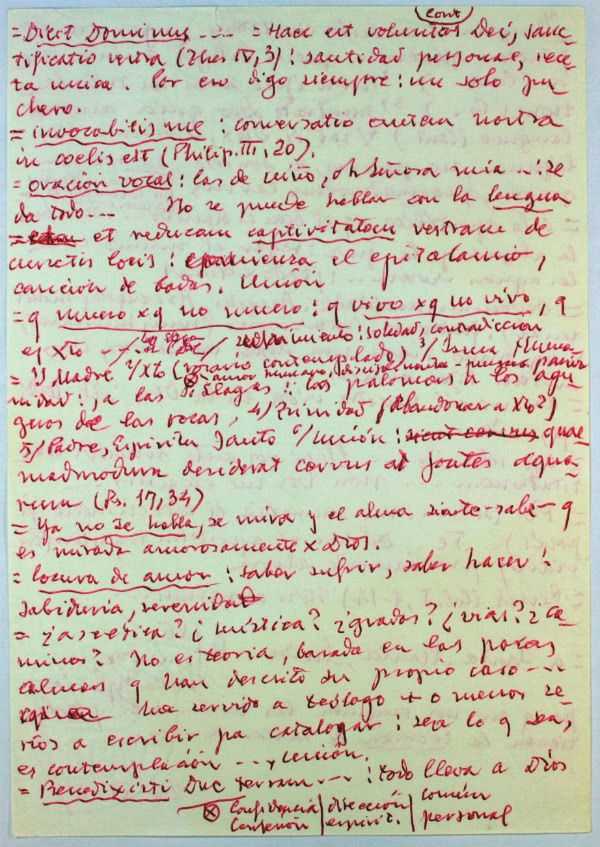 (cont)
= Dicit Dominus .... = Haec est voluntas Dei, sanc-
tificatio vestra (Thes IV, 3) : santidad personal, rece-
ta única. Por eso digo siempre : un solo pu-
chero.
= invocabitis me : conversatio autem nostra
in coelis est (Philip. III, 20).
= oración vocal : las de niño, oh Señora mía ... : se
da todo... No se puede hablar con la lengua
= et reducam captivitatem vestram de
cunctis locis : comienza el epitalamio,
canción de bodas. Unión
= q muero xq no muero : q vivo xq no vivo, q
es Xto sufrimiento : soledad, contradicción
= 1) Madre 2/ Xto (rosario contemplado) 3/ Sma Huma-
nidad : ⊗ a las llagas : las palomas a los agu-
jeros de las rocas, 4/ Trinidad (Abandonar a Xto?)
5/ Padre, Espíritu Santo 6/ Unión : quae
madmodum desiderat cervus ad fontes aqua
rum (Ps. 17, 34)
= Ya no se habla, se mira y el alma siente-sabe- q
es mirada amorosamente x Dios.
= locura de amor : saber sufrir, saber hacer,
sabiduría, serenidad
= ¿ascética? ¿mística? ¿grados? ¿vías? ¿ca-
minos? No es teoría, basada en las pocas
almas q han descrito su propio caso...
ha servido a teólogo + o menos se-
rios a escribir pa catalogar : sea lo q sea,
es contemplación ... , unión.
= Benedixisti Dne terram ... : todo lleva a Dios
⊗ Confidencia | dirección | común
Confesión | espirit. | personal